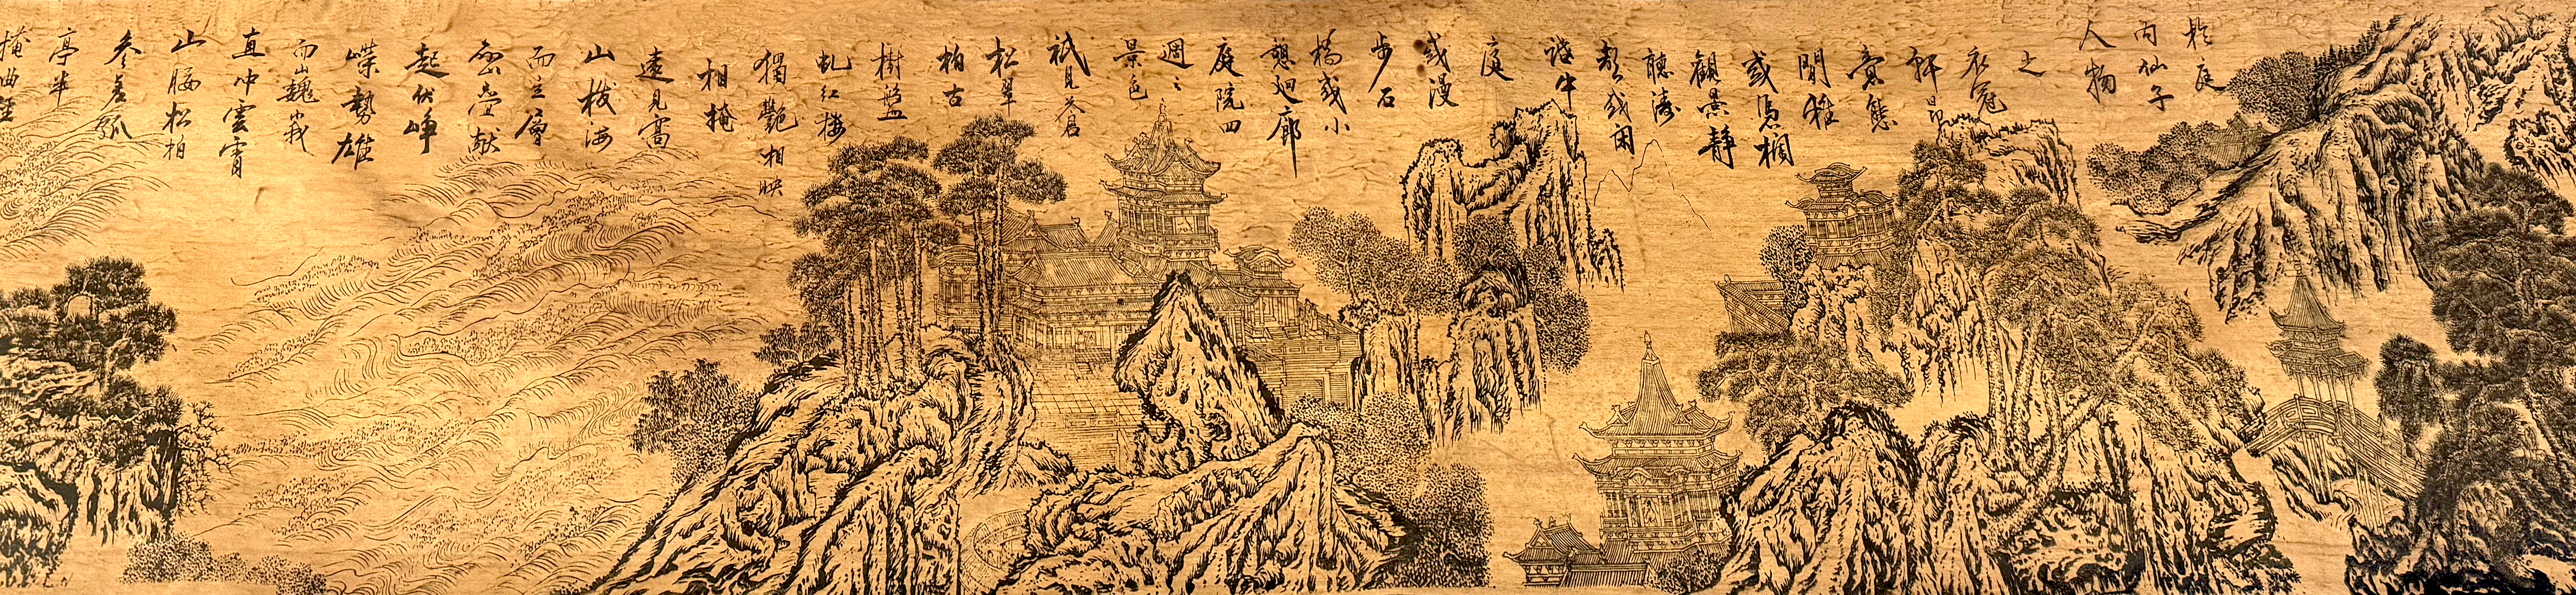 於庭
內仙子
人物
之
衣冠
軒昂
意態
閒雅
或馮欄
觀景靜
聽濤
或閑
談中
庭
或漫
步石
橋或小
憩迴廊
庭院四
週之
景色
祇見蒼
松翠
柏古
樹盤
虬紅樓
獨艷相映
相掩
遠見高
山拔海
而立層
巒疊献
起伏崢
嶸勢雄
而巍峩
直冲雲霄
山腰松柏
參差孤
亭半
掩曲徑